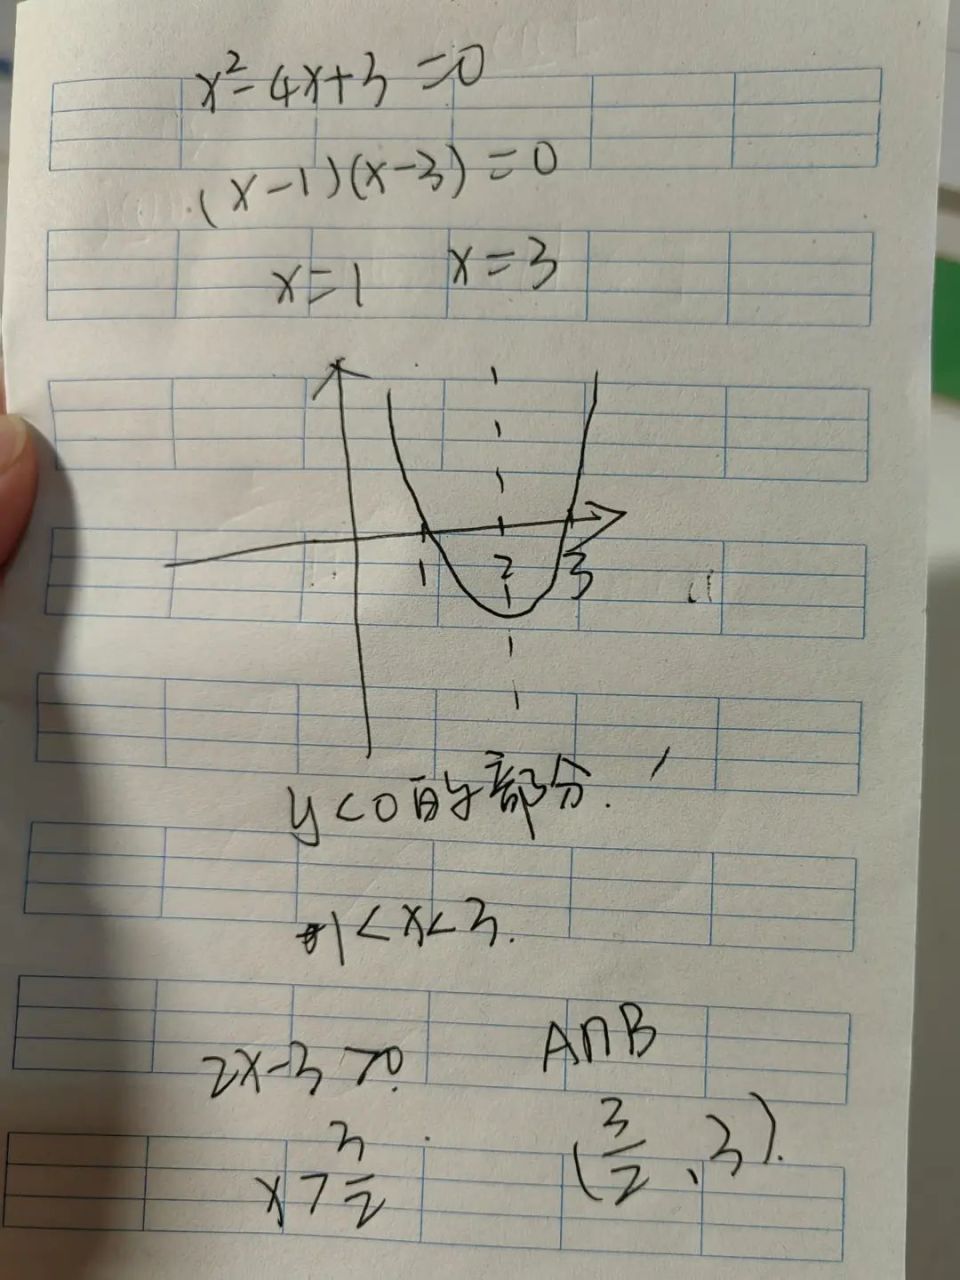 x²-4x+3=0
(x-1)(x-3)=0
x=1 x=3
1 2 3
y<0的部分.
1<x<3.
2x-3>0.
A∩B
x>3/2
(3/2,3).